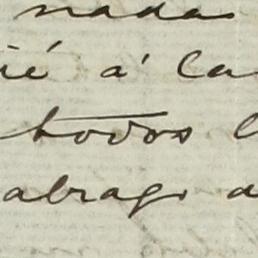 nada
ié á la
todos l
abrago a